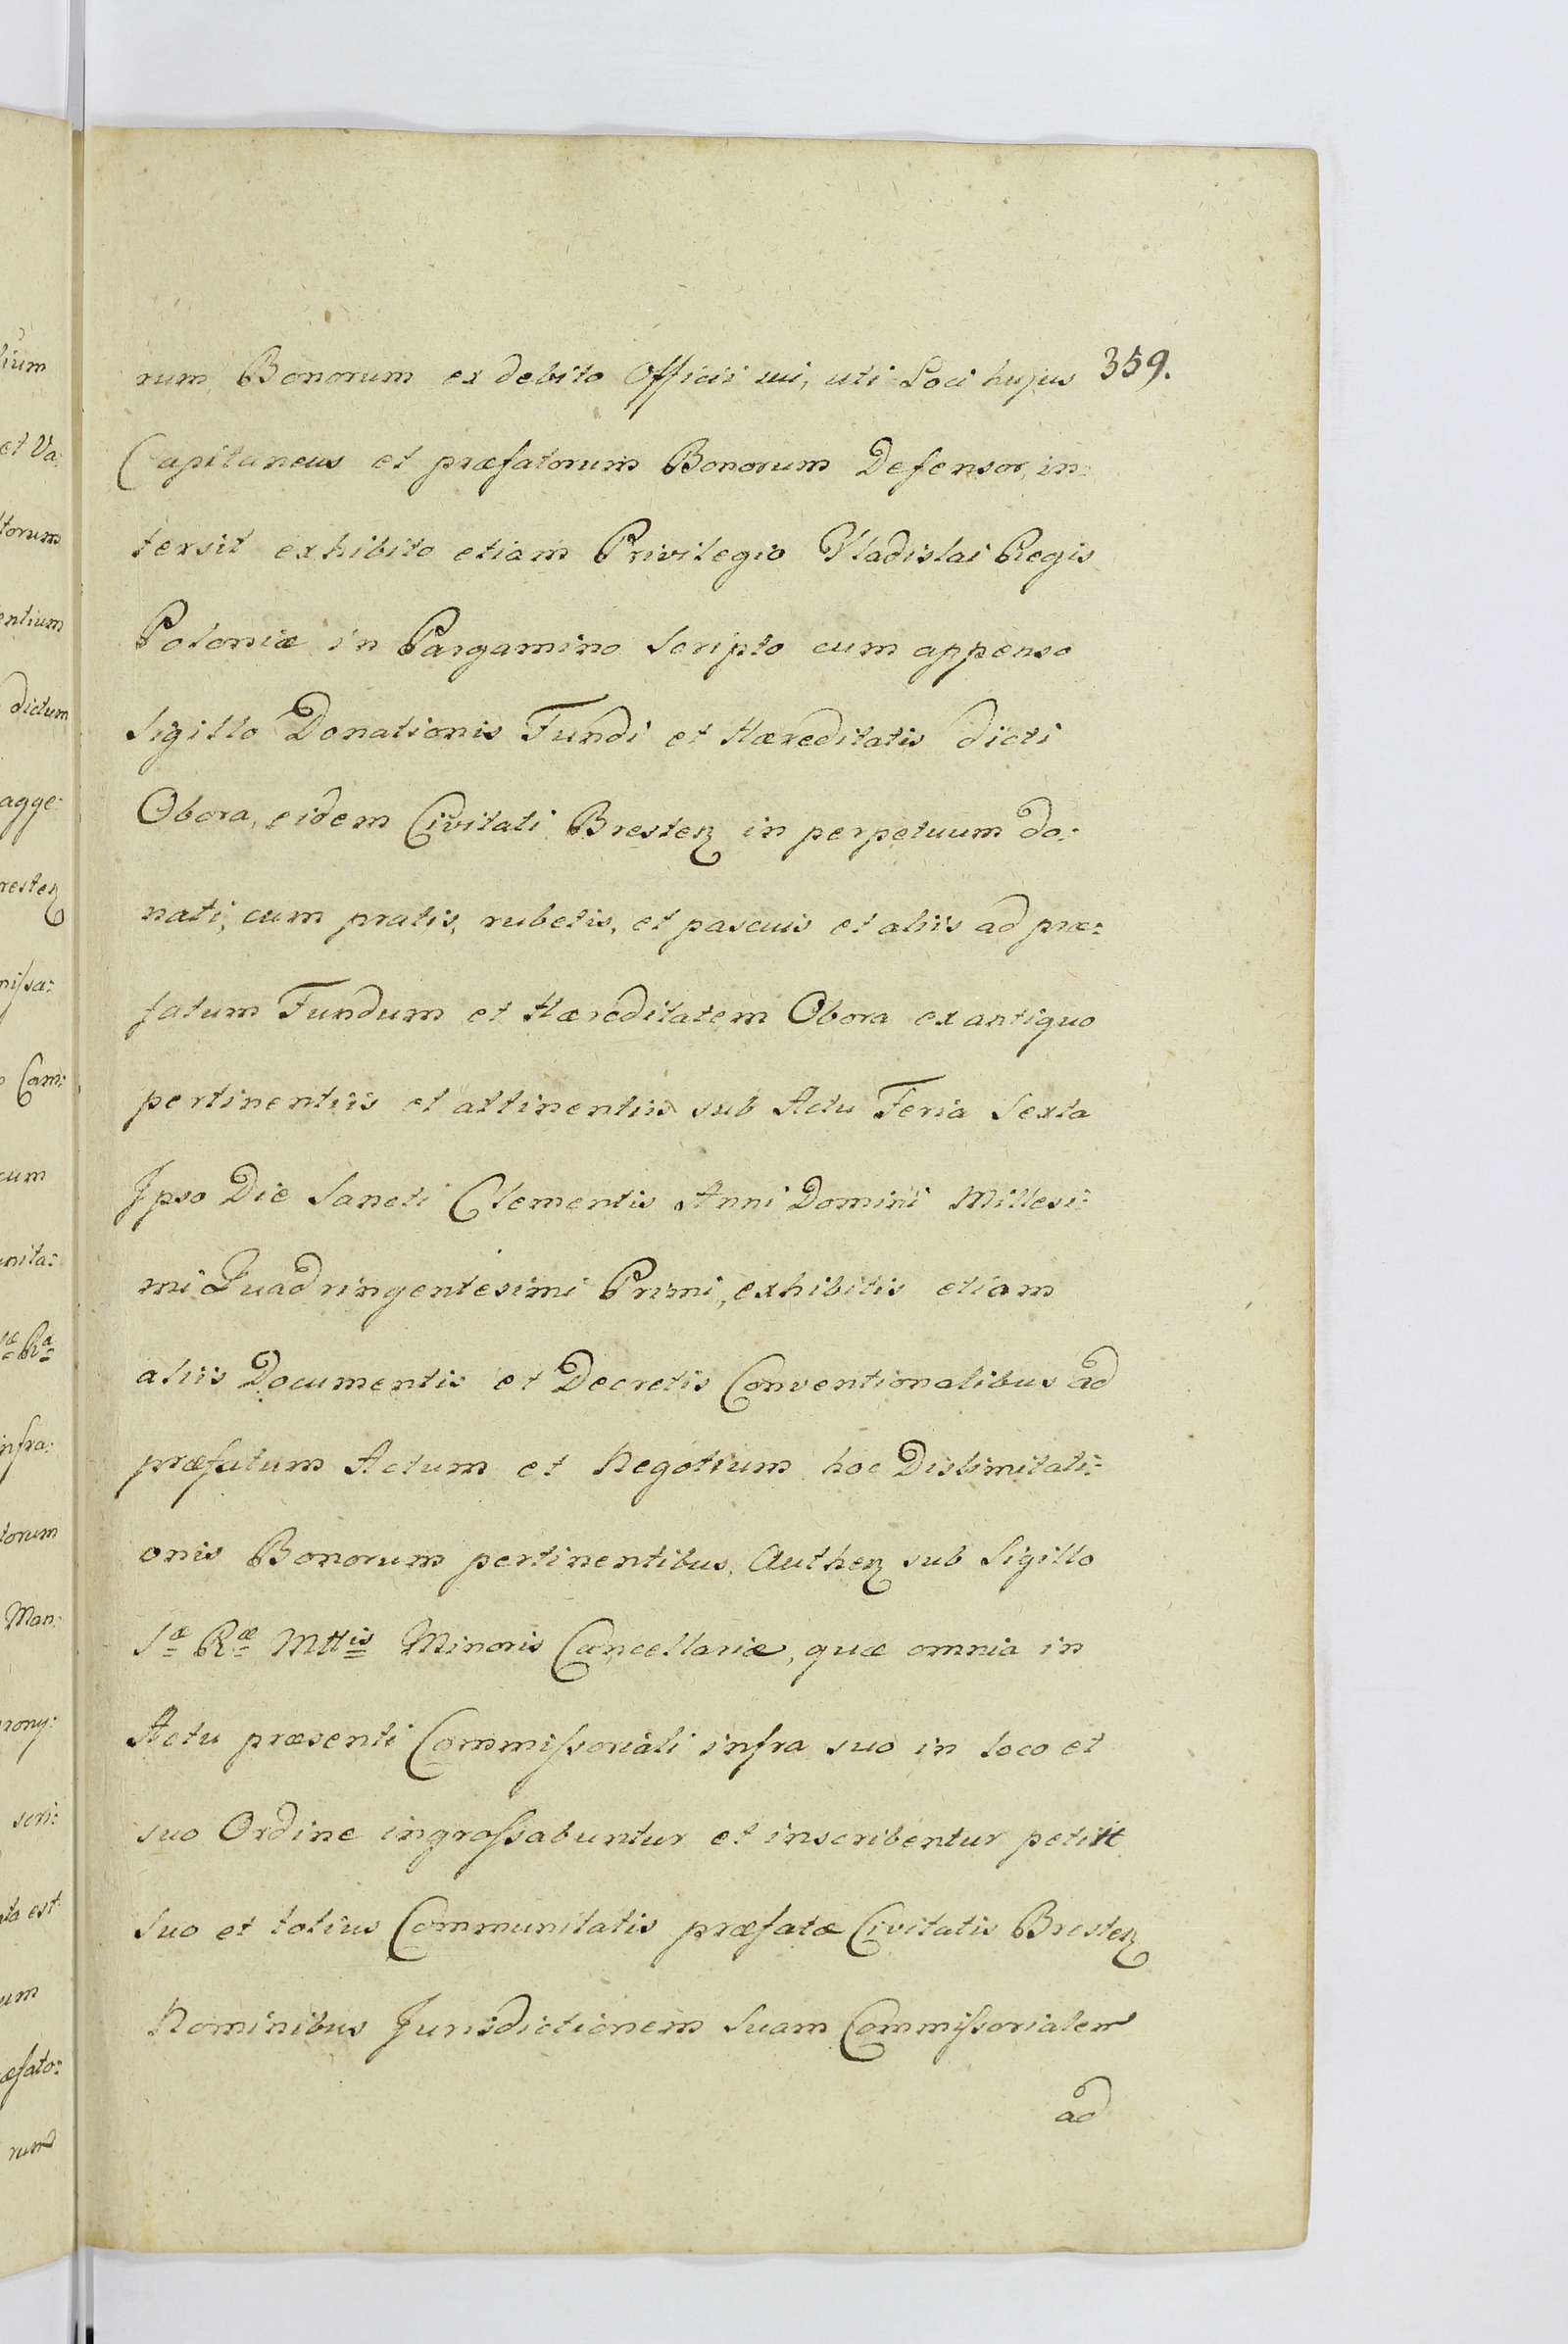 rum Bonorum ex debito Officii sui, uti Loci hujus 359.
Capitaneus et præfatorum Bonorum Defensor, in:
tersit exhibito etiam Privilegio Vladislai Regis
Poloniæ in Pargamino Scripto cum appenso
Sigillo Donationis Fundi et Hæreditatis dicti
Obora, eidem Civitati Bresteꝶ in perpetuum do:
nati, cum pratis, rubetis, et pascuis et aliis ad præ:
fatum Fundum et Hæreditatem Obora ex antiquo
pertinentiis et attinentiis sub Actu Feria Sexta
Ipso Die Sancti Clementis Anni Domini Millesi:
mi Quadringentesimi Primi, exhibitis etiam
aliis Documentis et Decretis Conventionalibus ad
præfatum Actum et Negotium hoc Dislimitati:
onis Bonorum pertinentibus, Autheꝶ sub Sigillo
Sæ Ræ Mttis Minoris Cancellariæ, quæ omnia in
Actu præsenti Commissoriali infra suo in loco et
suo Ordine ingrossabuntur et inscribentur petiit
Suo et totius Communitatis præfatæ Civitatis Bresteꝶ
Nominibus Jurisdictionem Suam Commissorialem
ad
lium
et Va:
torum
entium
dictum
agge:
resteꝶ
missa:
Cam:
cum
unita:
sæ Ræ
infra:
torum
Man:
rony:
scri:
ata est
um
æfato:
rum